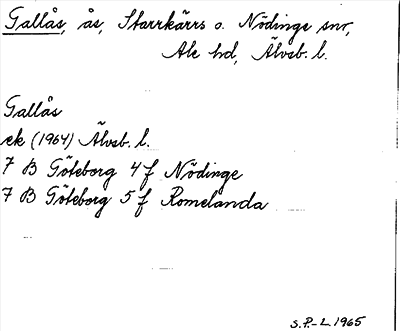 Gallås, ås, Starrkärrs o. Nödinge snr,
Ale hd, Älvsb. l.
Gallås
ek (1964) Älvsb. l.
7 B Göteborg 4 f Nödinge
7 B Göteborg 5 f Romelanda
S.P.-L. 1965